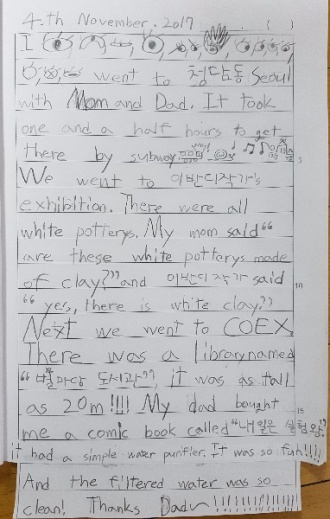 4.th November. 2017 ( )
I
went to 청담동 Seoul
with Mom and Dad. It took
one and a half hours to get
there by subway
We went to 이반디작가's
exhibition. There were all
white potterys. My mom said "
are these white potterys made
of clay?" and 이반디작가 said
" yes, there is white clay."
Next we went to COEX.
There was a library named
"별마당 도서관", it was as tall
as 20m!!!! My dad bought
me a comic book called "내일은 실험왕"
it had a simple water purifier. It was so fun!!!!
And the filtered water was so
clean! Thanks Dad~!!!!!!!!!!!!